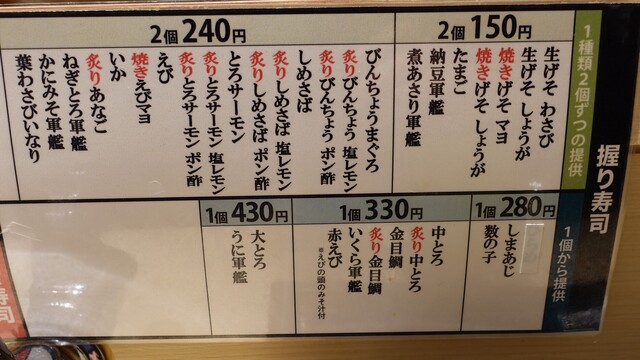 握り寿司
1種類2個ずつの提供
2個150円
生げそ わさび
生げそ しょうが
焼きげそ マヨ
焼きげそ しょうが
たまご
納豆軍艦
煮あさり軍艦
2個240円
びんちょうまぐろ
炙りびんちょう 塩レモン
炙りびんちょう ポン酢
しめさば
炙りしめさば 塩レモン
炙りしめさば ポン酢
とろサーモン
炙りとろサーモン 塩レモン
炙りとろサーモン ポン酢
えび
焼きえびマヨ
いか
炙りあなご
ねぎとろ軍艦
かにみそ軍艦
葉わさびいなり
1個から提供
1個280円
しまあじ
数の子
1個330円
中とろ
炙り中とろ
金目鯛
炙り金目鯛
いくら軍艦
赤えび
※えびの頭のみそ汁付
1個430円
大とろ
うに軍艦
寿司